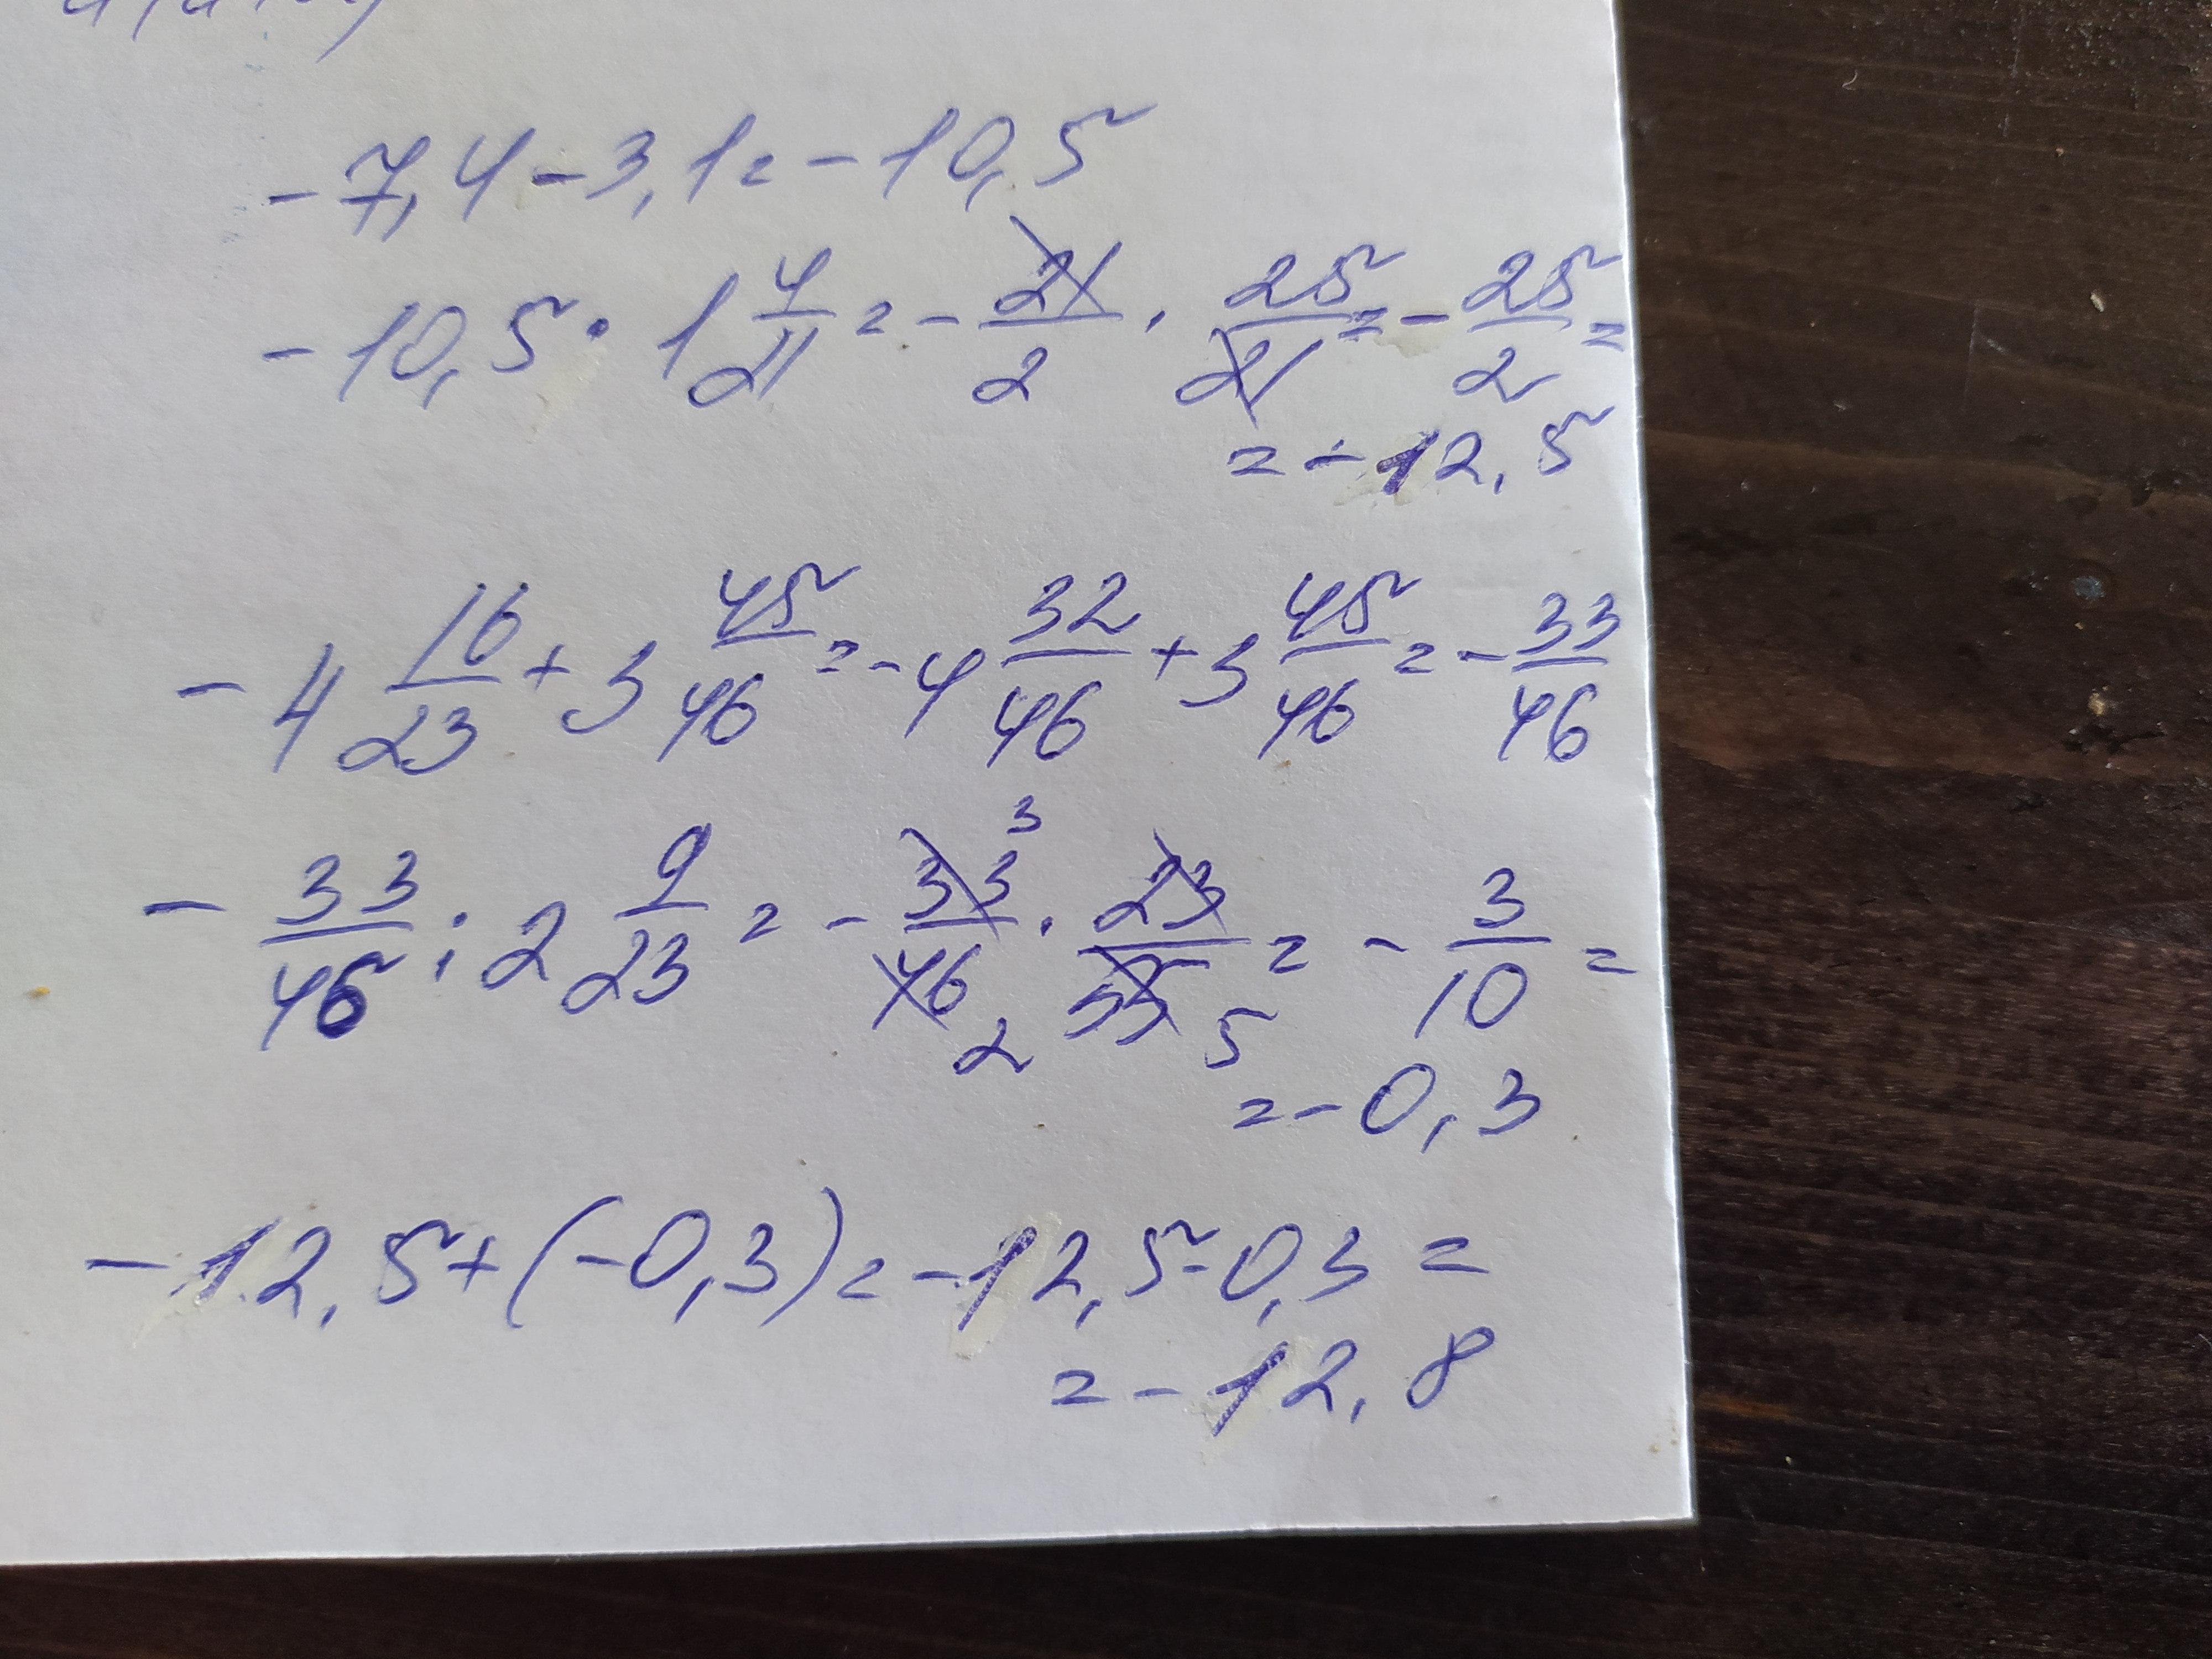 -7,4-3,1=-10,5
-10,5·1 4/21=-21/2·25/21=-25/2=
=-12,5
-4 16/23+3 45/46=-4 32/46+3 45/46=-33/46
-33/46:2 9/23=-33/46·23/55=-3/10=
3
2 5
=-0,3
-12,5+(-0,3)=-12,5-0,3=
=-12,8